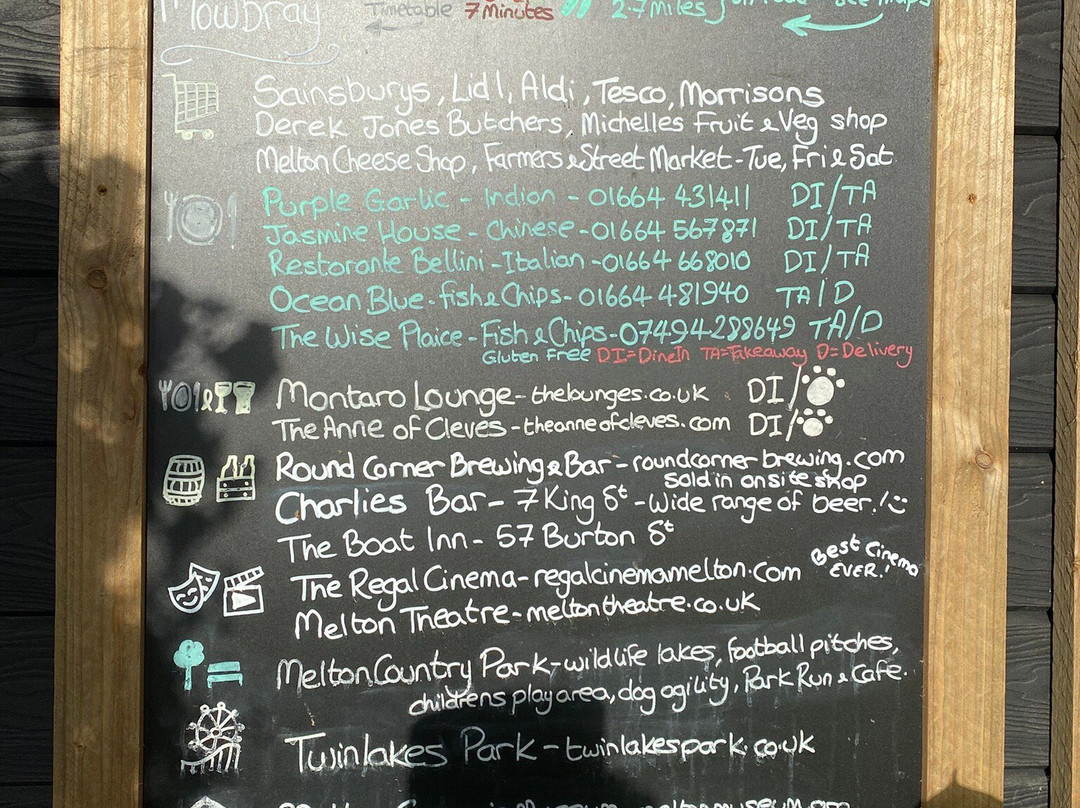 Mowbray Timetable 7 Minutes 2.7 miles
Sainsburys, Lidl, Aldi, Tesco, Morrisons
Derek Jones Butchers, Michelles Fruit & Veg shop
Melton Cheese Shop, Farmers & Street Market - Tue, Fri & Sat
Purple Garlic - Indian - 01664 431411 DI/TA
Jasmine House - Chinese - 01664 567871 DI/TA
Restorante Bellini - Italian - 01664 668010 DI/TA
Ocean Blue - fish & Chips - 01664 481940 TA/D
The Wise Plaice - Fish & Chips - 07494288649 TA/D
Gluten Free DI=DineIn TA=Takeaway D=Delivery
Montaro Lounge - thelounges.co.uk DI/
The Anne of Cleves - theanneofcleves.com DI/
Round Corner Brewing & Bar - roundcornerbrewing.com
sold in onsite shop
Charlies Bar - 7 King St - Wide range of beer!
The Boat Inn - 57 Burton St
The Regal Cinema - regalcinemamelton.com Best Cinema EVER!
Melton Theatre - meltontheatre.co.uk
Melton Country Park - wildlife lakes, football pitches,
childrens play area, dog agility, Park Run & Cafe.
Twinlakes Park - twinlakespark.co.uk